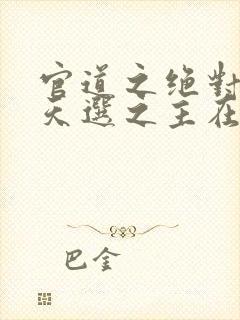 官道之绝對
天選之主在
巴金